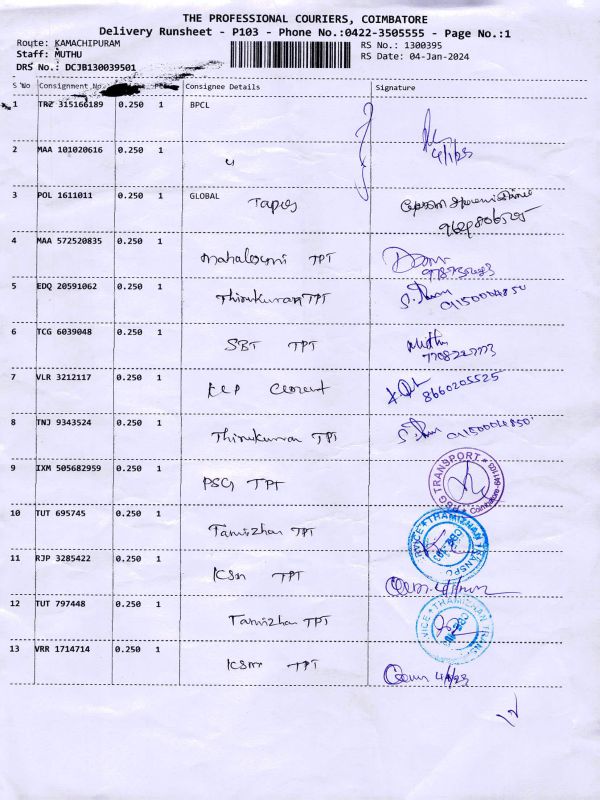 THE PROFESSIONAL COURIERS, COIMBATORE
Delivery Runsheet - P103 - Phone No.:0422-3505555 - Page No.:1
Route: KAMACHIPURAM
RS No.: 1300395
Staff: MUTHU
RS Date: 04-Jan-2024
DRS No.: DCJB130039501
S No Consignment No. Consignee Details Signature
1 TRZ 315166189 0.250 1 BPCL
4/1/23
2 MAA 101020616 0.250 1
"
3 POL 1611011 0.250 1 GLOBAL
Tapes
4 MAA 572520835 0.250 1
Mahalaxmi TPT
5 EDQ 20591062 0.250 1
Thirukumaran TPT
S. 9150004850
6 TCG 6039048 0.250 1
SBT TPT
Muthu
7 VLR 3212117 0.250 1
KCP Cement
8660205525
8 TNJ 9343524 0.250 1
Thirukumaran TPT
S. 9150004850
9 IXM 505682959 0.250 1
PSG TPT
PSG TRANSPORT * Coimbatore
10 TUT 695745 0.250 1
Tamizhan TPT
THAMIZHAN TRANSPO
11 RJP 3285422 0.250 1
KSM TPT
12 TUT 797448 0.250 1
Tamizhan TPT
THAMIZHAN TRANS
13 VRR 1714714 0.250 1
KSM TPT
4/1/23